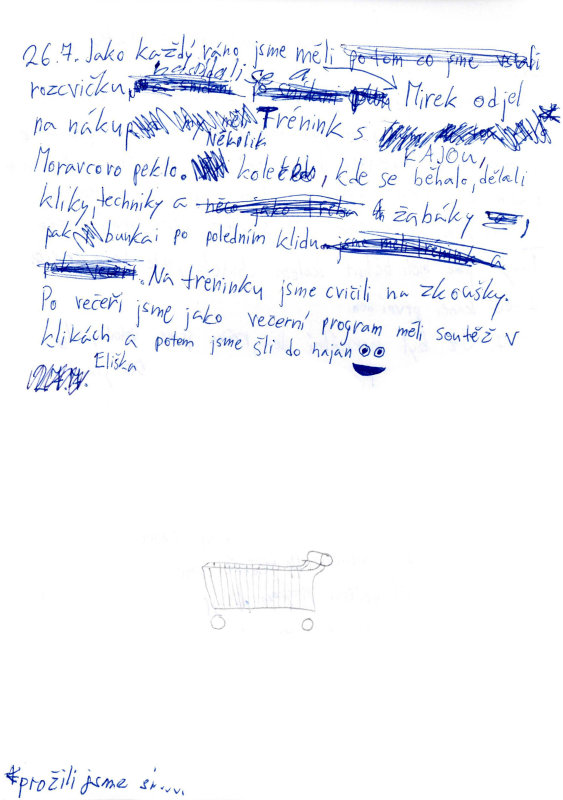 26.7. Jako každý ráno jsme měli potom co jsme vstali
nasnídali se a
rozcvičku, a snídani Mirek odjel
na nákup Trénink s *
KAJOU,
Několik
Moravcovo peklo. koleček, kde se běhalo, dělali
kliky, techniky a něco jako třeba žabáky a,
pak bunkai po poledním klidu jsme měli trénink a
pak večeři. Na tréninku jsme cvičili na zkoušky.
Po večeři jsme jako večerní program měli soutěž v
klikách a potom jsme šli do hajan
Eliška
*prožili jsme si....